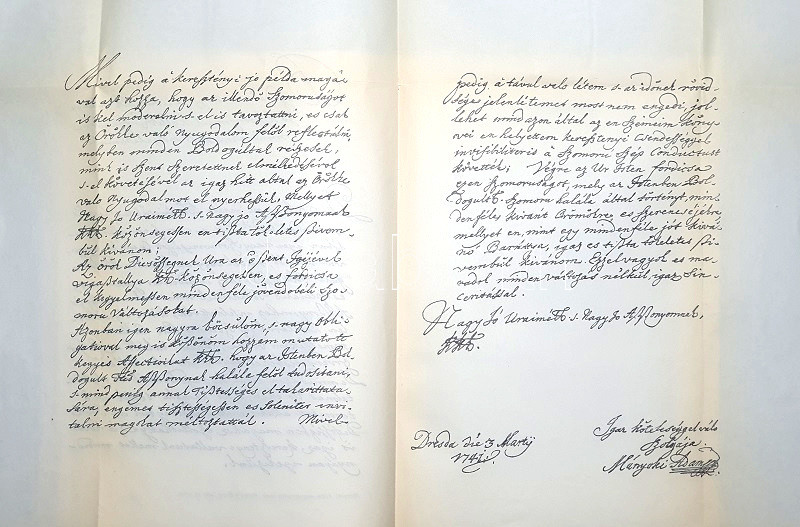 Mivel pedig á keresztényi jo példa magá¬
val azt hozza, hogy az illendő Szomoruságot
is kel moderalni s. el is távoztatni, es csak
az Örökke való Nyugodalom felől reflectálni,
melyben minden Boldogultal részesel,
mint is Szent Szeretettnek elmélkedésével
s. el követésével az igaz hitt által az Örökke
való Nyugodalmot el nyerhessük, Mellyet
Nagy Jó Uraimék s. nagy jo Aszszonyomnak
közönségessen en tiszta tökélletes szivem¬
bül kivánom;
Az Örök Dicsősségnek Ura az ő Szent Igéjével
vigasztallya közönségessen, es fordicsa
el kegyelmessen minden féle jövendőbéli Szo¬
moru Változásokat.
Azonban igen nagyra böcsülöm, s. nagy Obli¬
gatioval meg is köszönöm hozzám on utató te
kegyes Affectioiкat hogy az Istenben Bol
dogult Aszszonynak halála felől tudositani,
s. mind penig annak Tisztességes el takaritta
sára, engemet tisztességessen es Soleniter invi¬
talni magokat méltoztattál. Mivel
pedig á tával való létem s. az időnek rövid¬
séges jelenlétemet most nem engedi, jol
lehet mind azon által az en Szemeim Köny
vei en helyettem keresztényi Csendességgel
invisibiliter is á Szomorú Szép Conductust
követték; Végre az Ur Isten fordicsa
ezen Szomoruságot, mely az Istenben Bol¬
dogult Szomorú halála által történt, min¬
den féles kivánt Örömökre, es Szerencséjekre,
mellyet en, mint egy minden féle jót kivá
nó Baráttya, igaz es tiszta tökéletes szi
vembül kivánom. Ezel vagyok es ma¬
radok minden változás nélkül, igaz Sin¬
ceritással.
Nagy Jó Uraimék s. Nagy Jo Aszszonyomnak,
Dresda die 3 Martij
1741.
Igaz köteleséggel való
Szolgája.
Mányoki Adam